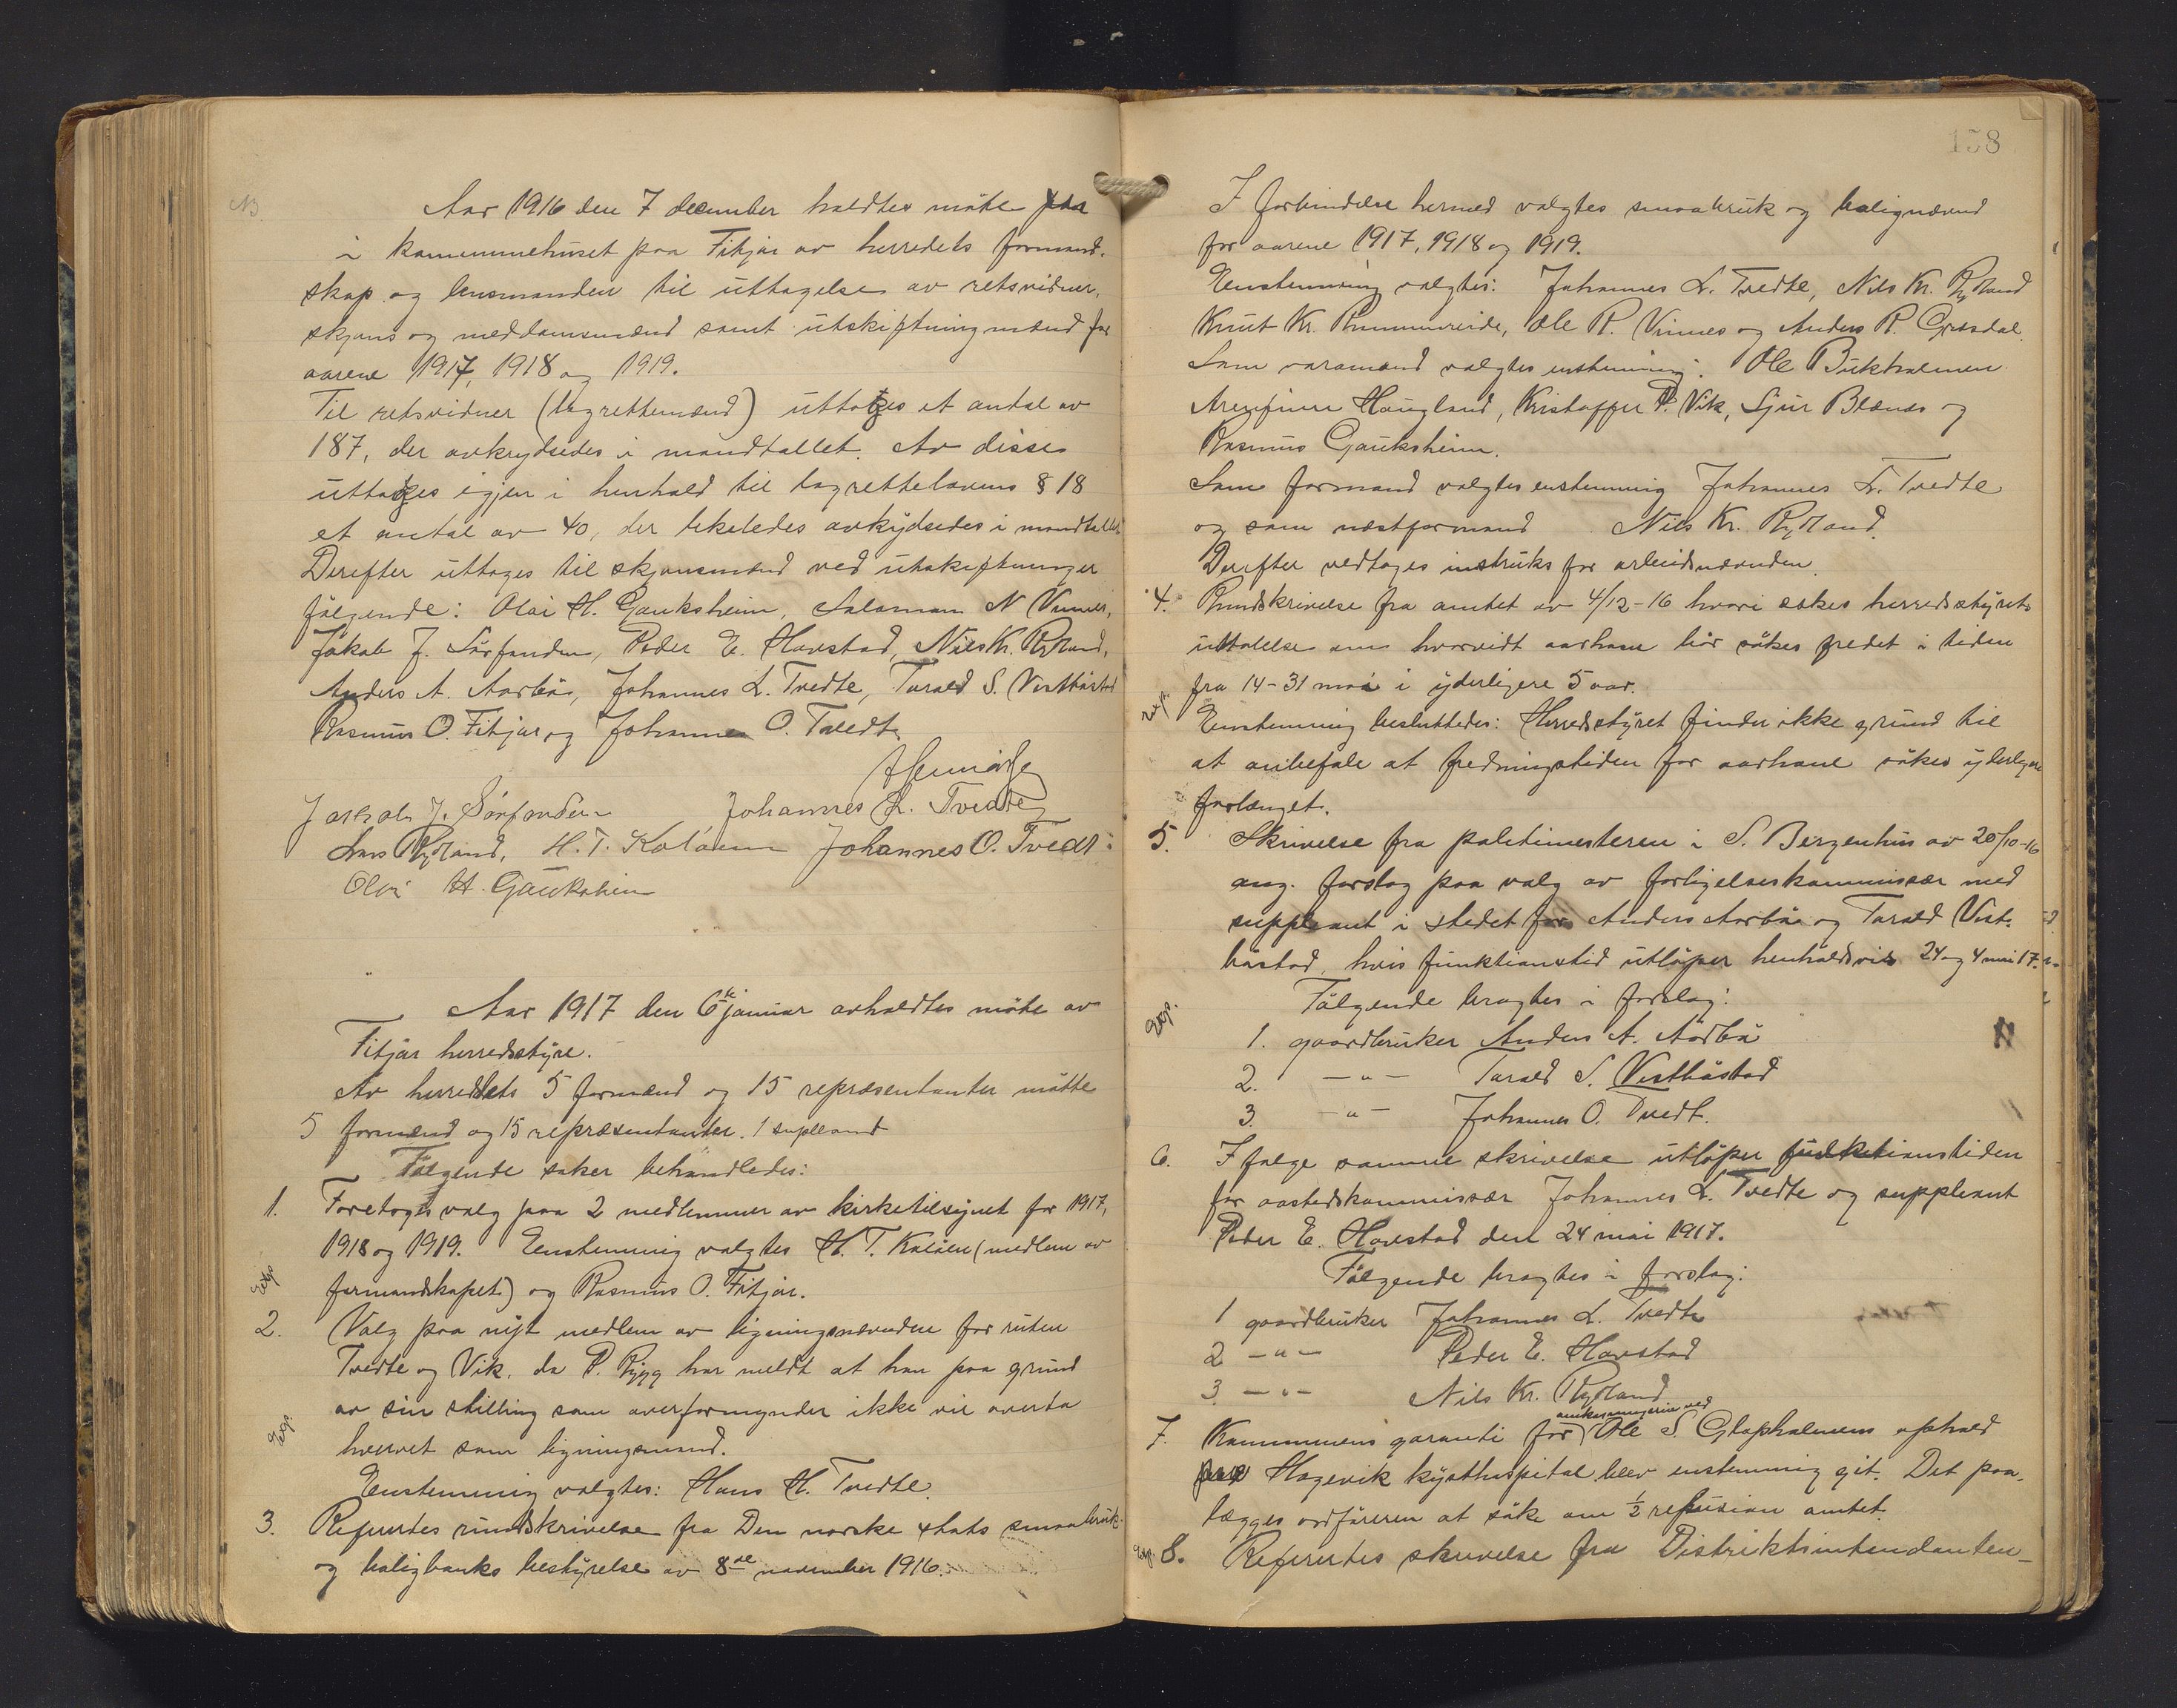 Aar 1916 den 7 december holdtes møte paa
i kommunehuset paa Fitjar av herredets formand-
skap og lensmanden til uttagelse av retsvidner,
skjøns og meddomsmænd samt utskiftningmænd for
aarene 1917, 1918 og 1919.
Til retsvidner (lagrettemænd) uttoges et antal av
187, der avkrydsedes i mandtallet. Av disse
uttoges igjen i henhold til lagrettelovens § 18
et antal av 40, der likeledes avkrydsedes i mandtallet
Derefter uttoges til skjønsmænd ved utskiftninger
følgende: Olai H. Gauksheim, Salamon N Vinnes,
Jakob J. Sørfonden, Peder E. Havstad, Nils Kr. Rydland,
Anders A. Aarbø, Johannes L. Tvedte, Tarald S. Vestbøstad
Rasmus O. Fitjar og Johannes O. Tvedt.
Jakob J. Sørfonden Johannes L. Tvedte
Lars Rydland, H. T. Koløen Johannes O. Tvedt.
Olai H. Gauksheim
Aar 1917 den 6te januar avholdtes møte av
Fitjar herredsstyre.
Av herredets 5 formænd og 15 repræsentanter møtte
5 formænd og 15 repræsentanter. 1 supleant
Følgende saker behandledes:
1. Foretoges valg paa 2 medlemmer av kirketilsynet for 1917,
1918 og 1919. Enstemmig valgtes H. T. Koløen (medlem av
Exp
formandskapet) og Rasmus O. Fitjar.
2. Valg paa nyt medlem av ligningsnævnden for ruten
Tvedte og Vik, da P. Rygg har meldt at han paa grund
av sin stilling som overformynder ikke vil overta
Exp.
hvervet som ligningsmand.
Enstemmig valgtes: Hans H. Tvedte.
3. Refertes rundskrivelse fra Den norske stats smaabruk-
og boligbanks bestyrelse av 8de november 1916.
158
I forbindelse hermed valgtes smaabruk og bolignævnd
for aarene 1917, 1918 og 1919.
Enstemmig valgtes: Johannes L. Tvedte, Nils Kr. Rydland
Knut Kr. Rimmereide, Ole R. Vinnes og Anders R. Grøsdal.
Som varamænd valgtes enstemmig: Ole Bukholmen
Arnfinn Haugland, Kristoffer P. Vik, Sjur Blænes og
Rasmus Gauksheim.
Som formand valgtes enstemmig Johannes L. Tvedte
og som næstformand Nils Kr. Rydland.
Derefter vedtoges instruks for arbeidsnævnden.
4. Rundskrivelse fra amtet av 4/12-16 hvori søkes herredsstyrets
uttalelse om hvorvidt aarhane bør søkes fredet i tiden
fra 14-31 mai i yderligere 5 aar.
Exp.
Enstemmig besluttedes: Herredsstyret finder ikke grund til
at anbefale at fredningstiden for aarhane søkes yderligere
forlænget.
5. Skrivelse fra politimesteren i S. Bergenhus av 20/10-16
ang. forslag paa valg av forligelseskommissær med
suppleant i stedet for Anders Aarbø og Tarald Vest-
bøstad, hvis funktionstid utløper henholdsvis 24 og 4 mai 17.
Følgende bragtes i forslag:
Exp.
1. gaardbruker Anders A. Aarbø
2. -"- Tarald S. Vestbøstad
3. -"- Johannes O. Tvedt.
6. I følge samme skrivelse utløper funktionstiden
for aastedskommissær Johannes L. Tvedte og suppleant
Peder E. Havstad den 24 mai 1917.
Følgende bragtes i forslag:
1 gaardbruker Johannes L. Tvedte
2 -"- Peder E. Havstad
3 -"- Nils Kr. Rydland
7. Kommunens garanti for Ole S. Glopholmens ophold
paa Hagevik kysthospital blev enstemmig git. Det paa-
lægges ordføreren at søke om 1/2 refusion amtet.
Exp. 8. Refertes skrivelse fra Distriktsintendanten-